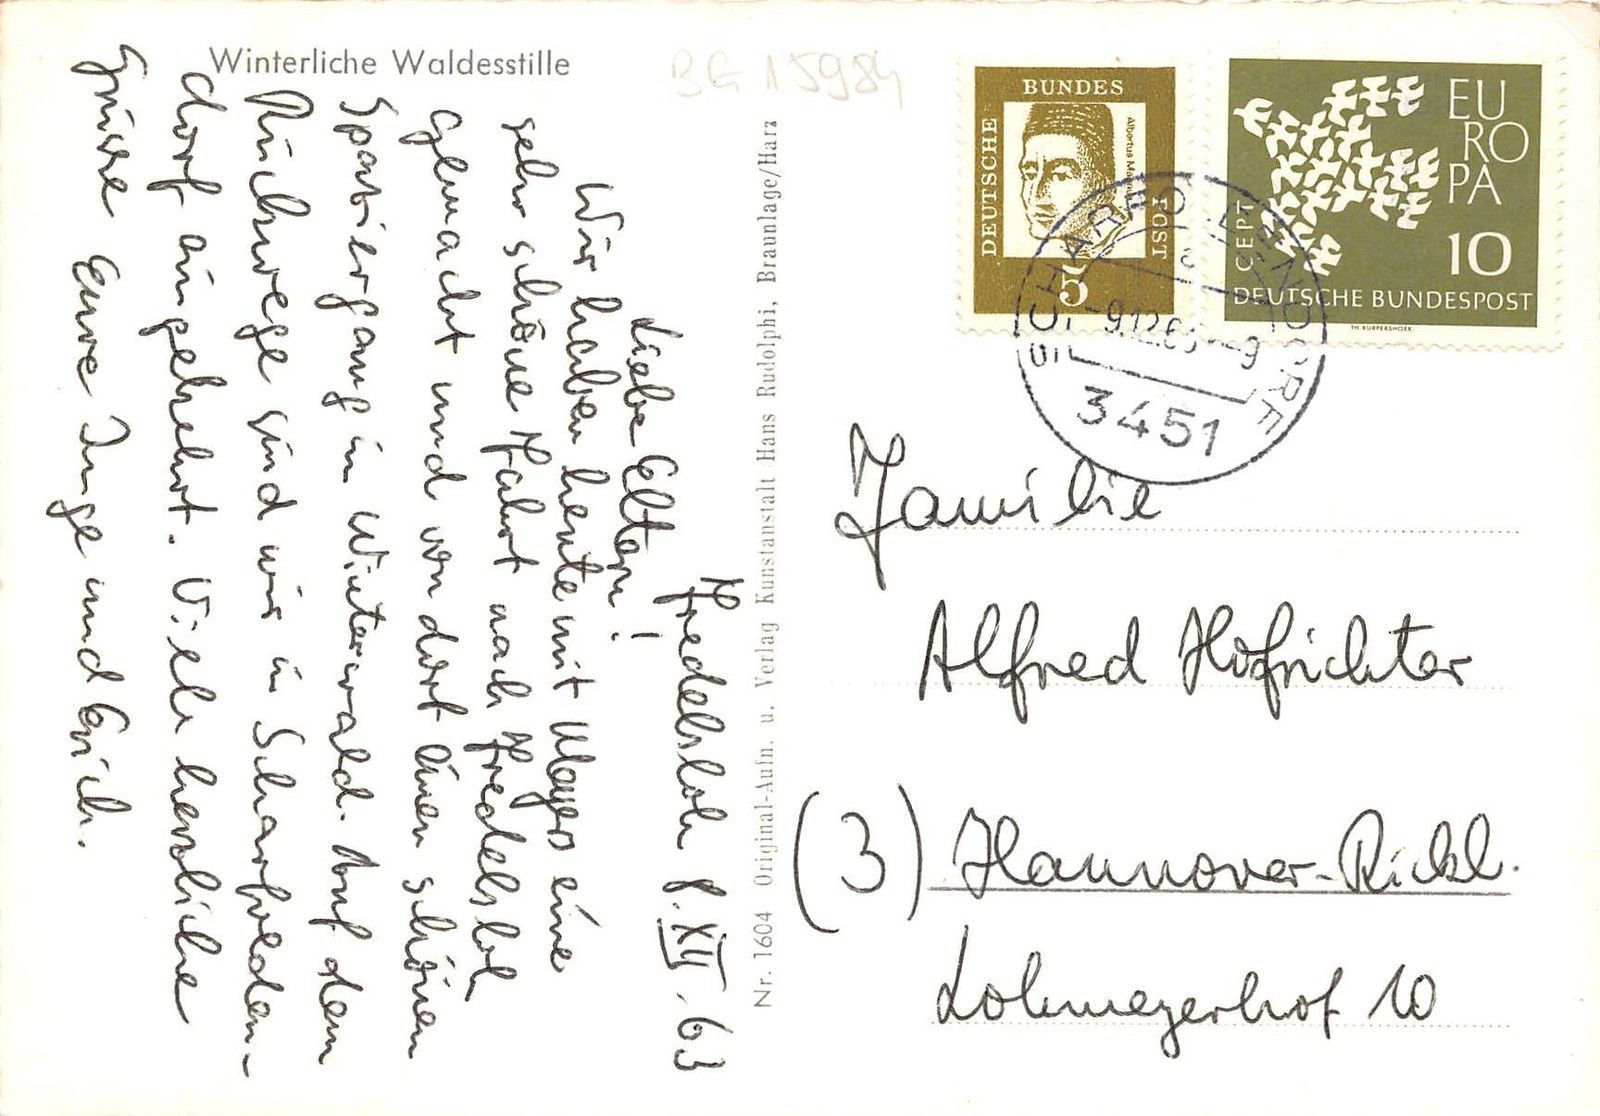 Winterliche Waldesstille
BG 15984
Fredelsloh 8.XII.63
Liebe Eltern!
Wir haben heute mit Mayers eine
sehr schöne Fahrt nach Fredelsloh
gemacht und von dort einen schönen
Spaziergang im Winterwald. Auf dem
Rückwege sind wir in Scharfolden-
dorf eingekehrt. Viele herzliche
Grüsse Eure Inge und Erich.
Nr. 1604 Original-Aufn. u. Verlag Kunstanstalt Hans Rudolphi, Braunlage/Harz
DEUTSCHE BUNDES POST
Albertus
5
EUROPA
CEPT
10
DEUTSCHE BUNDESPOST
TH. KURPERSHOEK
SCHARFOLDENDORF
3451
Familie
Alfred Hofrichter
(3) Hannover-Rickl.
Lohmeyerhof 10